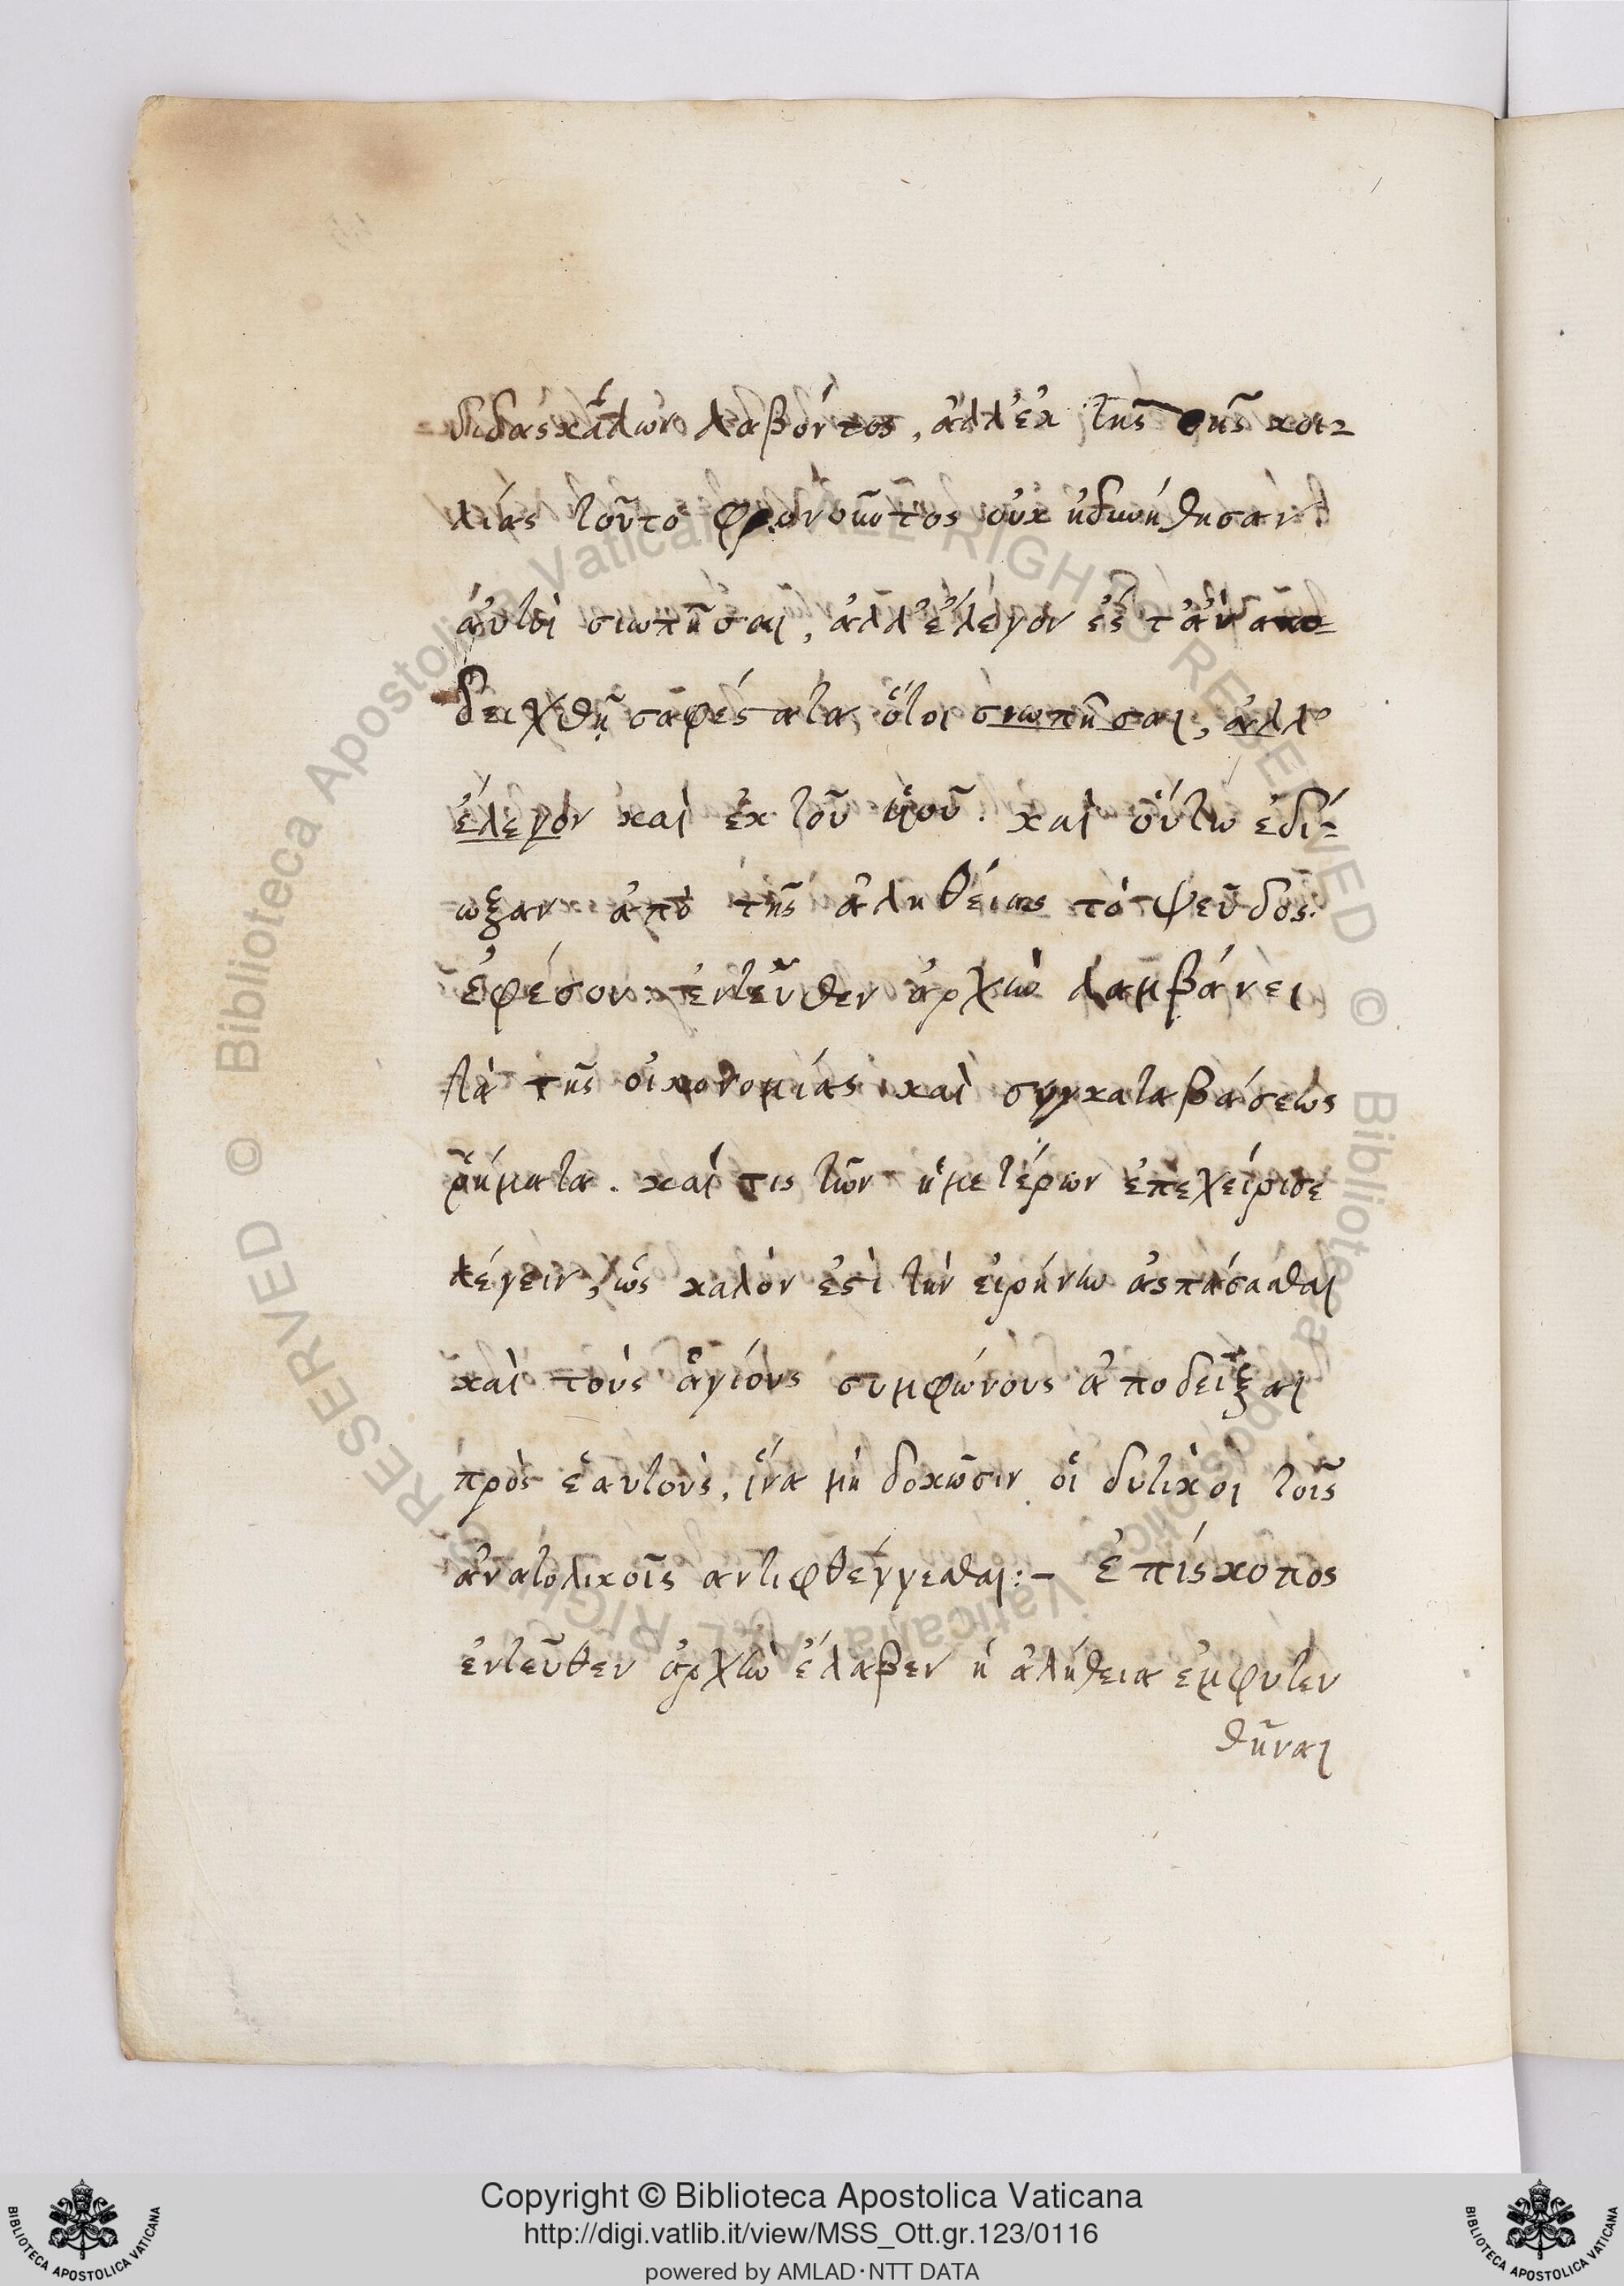 διδασκάλων λαβόντος, ἀλλ' ἐκ τῆς σῆς κοι-
λίας τοῦτο φρονοῦντος οὐκ ἠδυνήθησαν
αὐτοὶ σιωπῆσαι, ἀλλ' ἔλεγον ἐξ
δειχθῇ σαφέστατα, σιωπῆσαι, ἀλλ'
ἔλεγον καὶ ἐκ τοῦ υἱοῦ. καὶ οὕτω ἐδί-
ωξαν ἀπὸ τῆς ἀληθείας τὸ ψεῦδος.
ἐφέσου: ἐντεῦθεν ἀρχὴν λαμβάνει
τὰ τῆς οἰκονομίας καὶ συγκαταβάσεως
ῥήματα. καί τις τῶν ἡμετέρων ἐπεχείρισε
λέγειν, ὡς καλὸν ἐστὶ τὴν εἰρήνην ἀσπάσασθαι
καὶ τοὺς ἁγίους συμφώνους ἀποδεῖξαι
πρὸς ἑαυτοὺς, ἵνα μὴ δοκῶσιν οἱ δυτικοὶ τοῖς
ἀνατολικοῖς αντιφθέγγεσθαι:- ἐπίσκοπος
ἐντεῦθεν ἀρχὴν ἔλαβεν ἡ ἀλήθεια ἐμφυτευ
θῆναι
Copyright © Biblioteca Apostolica Vaticana
http://digi.vatlib.it/view/MSS_Ott.gr.123/0116
powered by AMLAD·NTT DATA